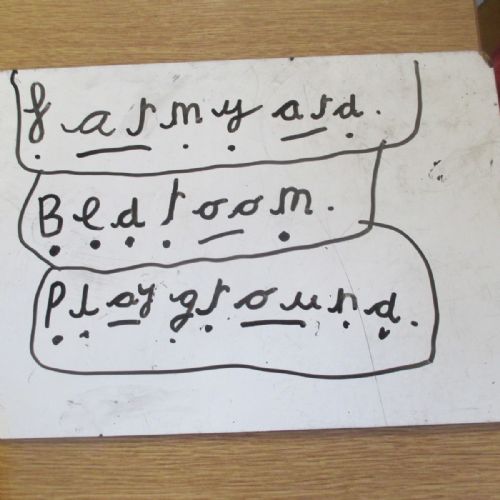 farmyard.
Bedroom.
Playground.